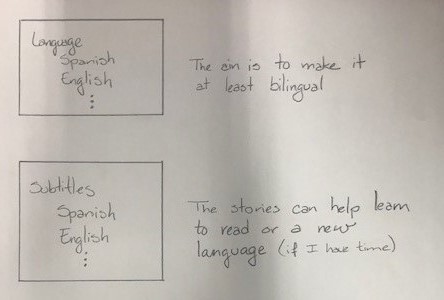 Language
Spanish
English
⋮
The aim is to make it
at least bilingual
Subtitles
Spanish
English
⋮
The stories can help learn
to read or a new
language (if I have time)